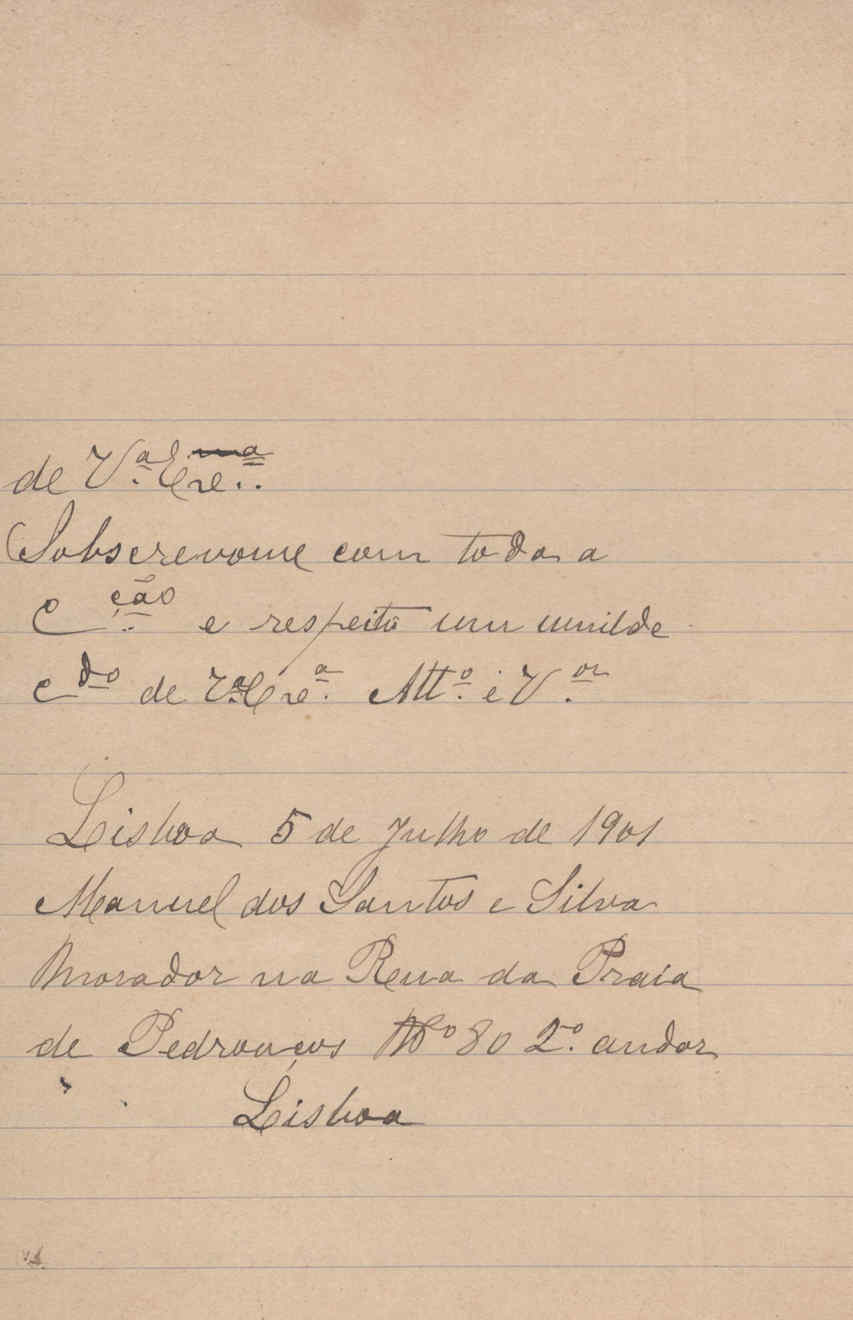 de V.ª Exe.ª
Subscrevome com toda a
C.ção e respeito um umilde
Cdo de V.ª Exe.ª Att.º e V.or
Lisboa 5 de Julho de 1901
Manuel dos Santos e Silva
Morador na Rua da Praia
de Pedrouços Nº 80 2.º andar
Lisboa